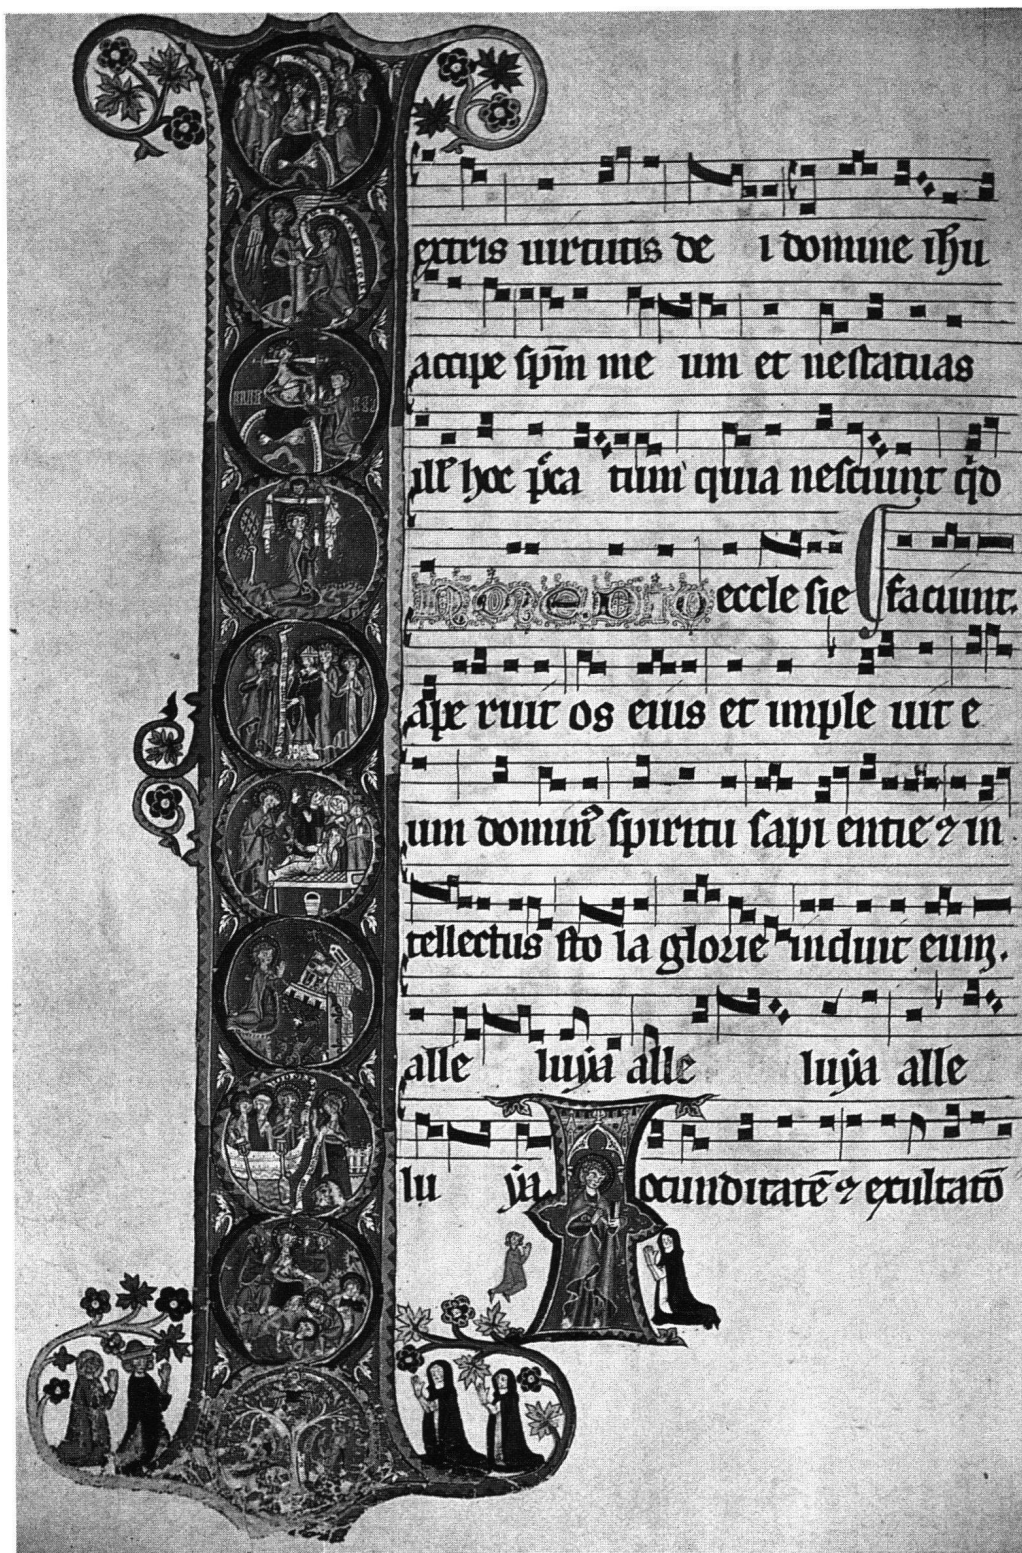 extris uirtutis de i domine ihu
accipe spm me um et ne statuas
ill hoc pca tum quia nesciunt qd
In medio eccle sie faciunt.
ape ruit os eius et imple uit e
um domin spiritu sapi entie ⁊ in
tellectus sto la glorie induit eum.
alle luya alle luya alle
lu ya Iocunditatē ⁊ exultatō